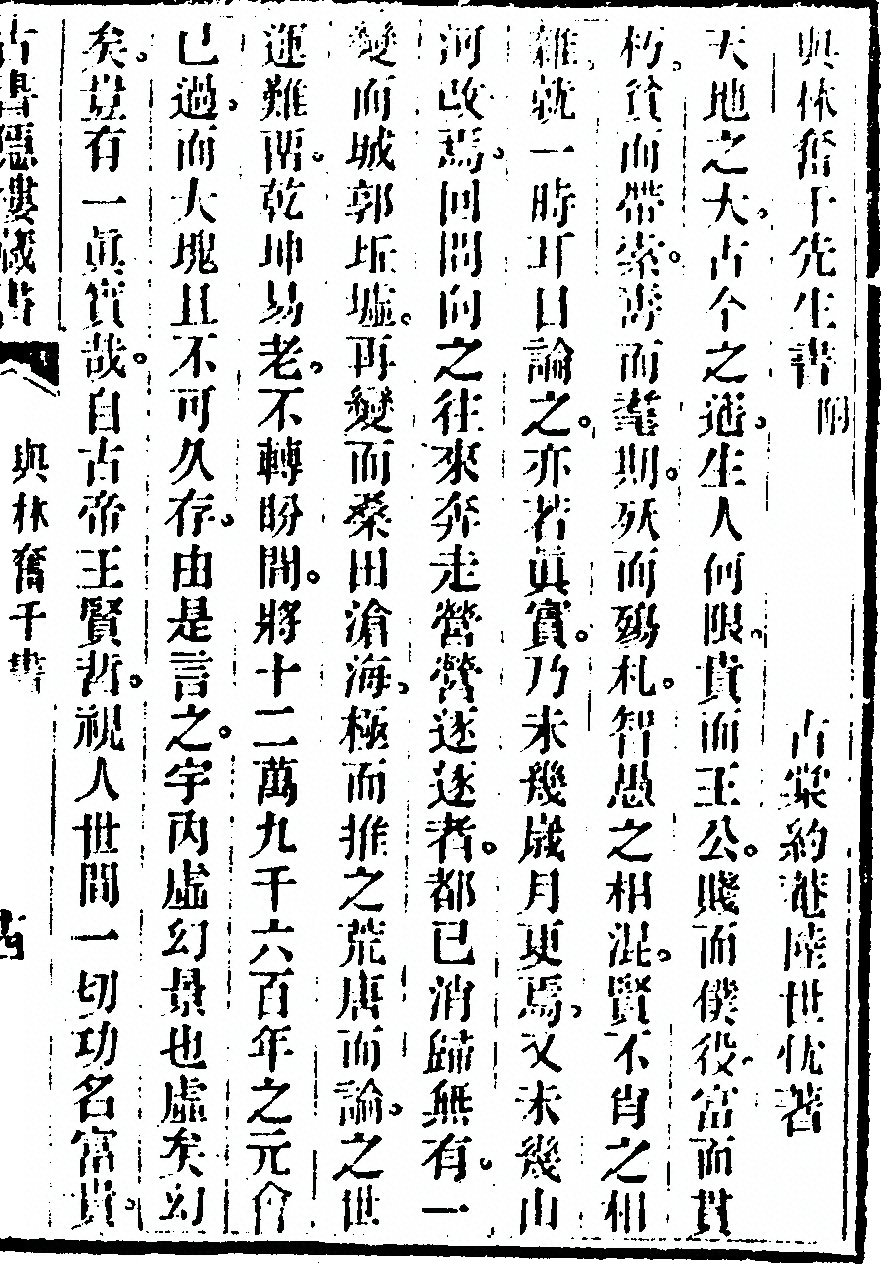 與林奮千先生書 附
古棠約菴陸世忱著
天地之大。古今之遙。生人何限。貴而王公。賤而僕役。富而貫
朽。貧而帶索。壽而耄期。殀而殤札。智愚之相混。賢不肖之相
雜。就一時耳目論之。亦若眞實。乃未幾歲月更焉。又未幾山
河改焉。回問向之往來奔走營營逐逐者。都已消歸無有。一
變而城郭坵墟。再變而桑田滄海。極而推之荒唐而論。之世
運難窮。乾坤易老。不轉盼間。將十二萬九千六百年之元會
已過。而大塊且不可久存。由是言之。宇內虛幻景也虛矣幻
矣。豈有一眞實哉。自古帝王賢哲。視人世間一切功名富貴。
古書隱樓藏書
與林奮千書